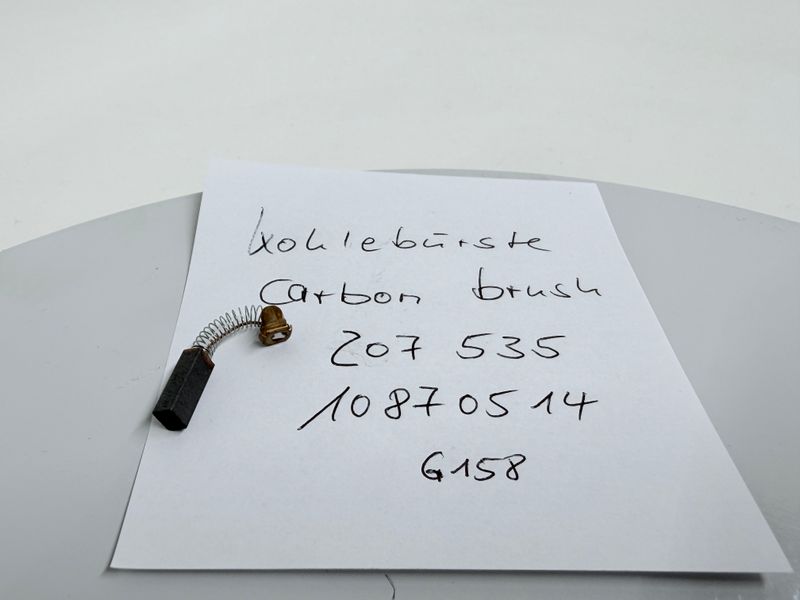 Kohlebürste
Carbon brush
207 535
10870514
G158